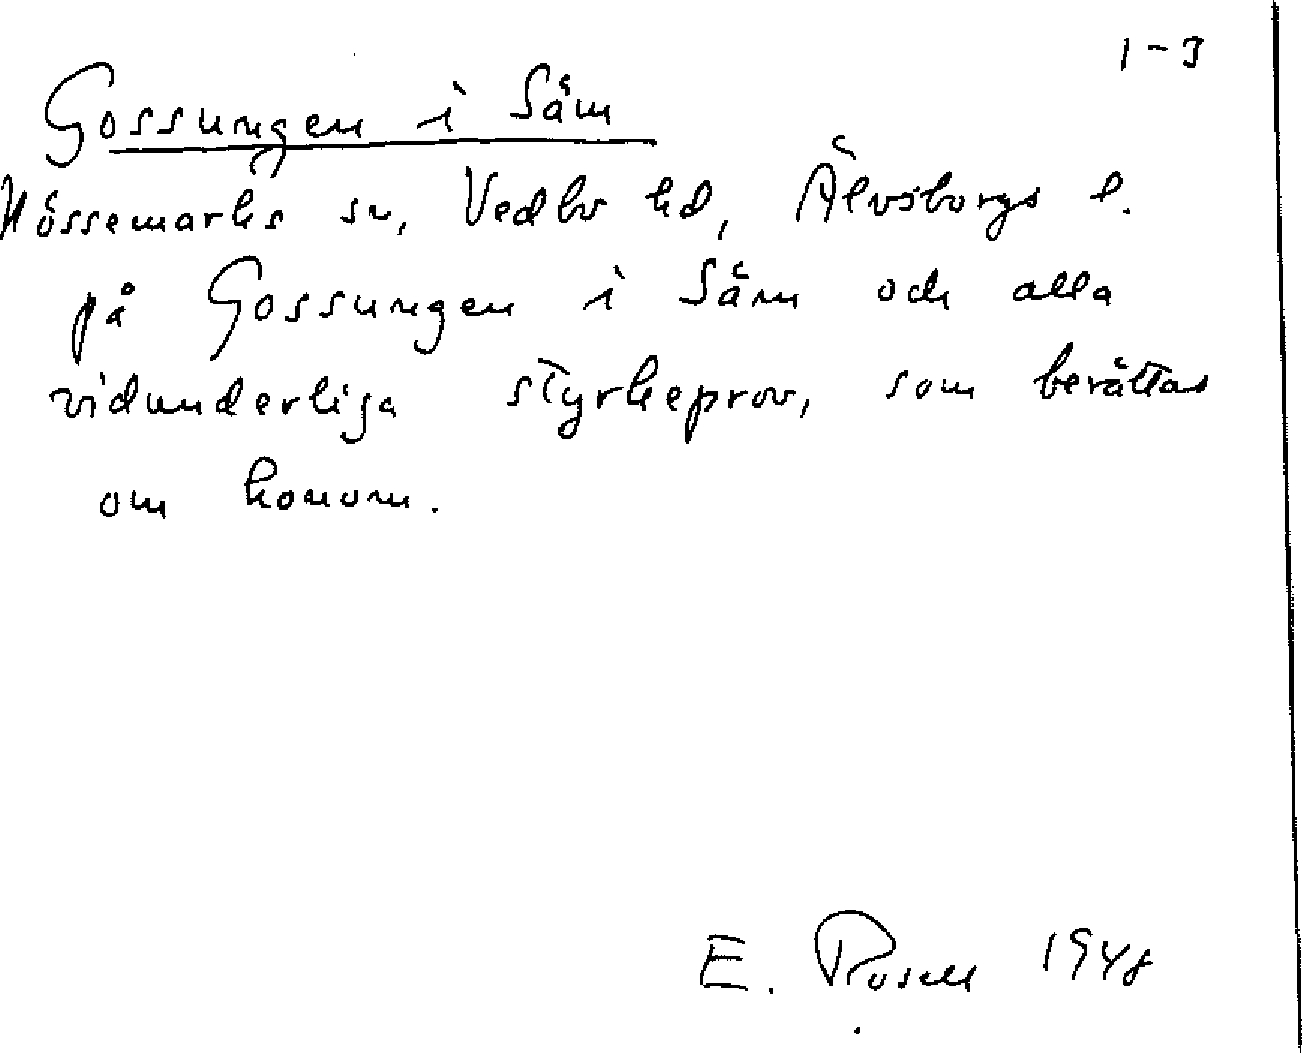 1-3
Gossungen i Säm
Nössemarks sn, Vedbo hd, Älvsborgs l.
på Gossungen i Säm och alla
vidunderliga styrkeprov, som berättas
om honom.
E. Rosell 1948